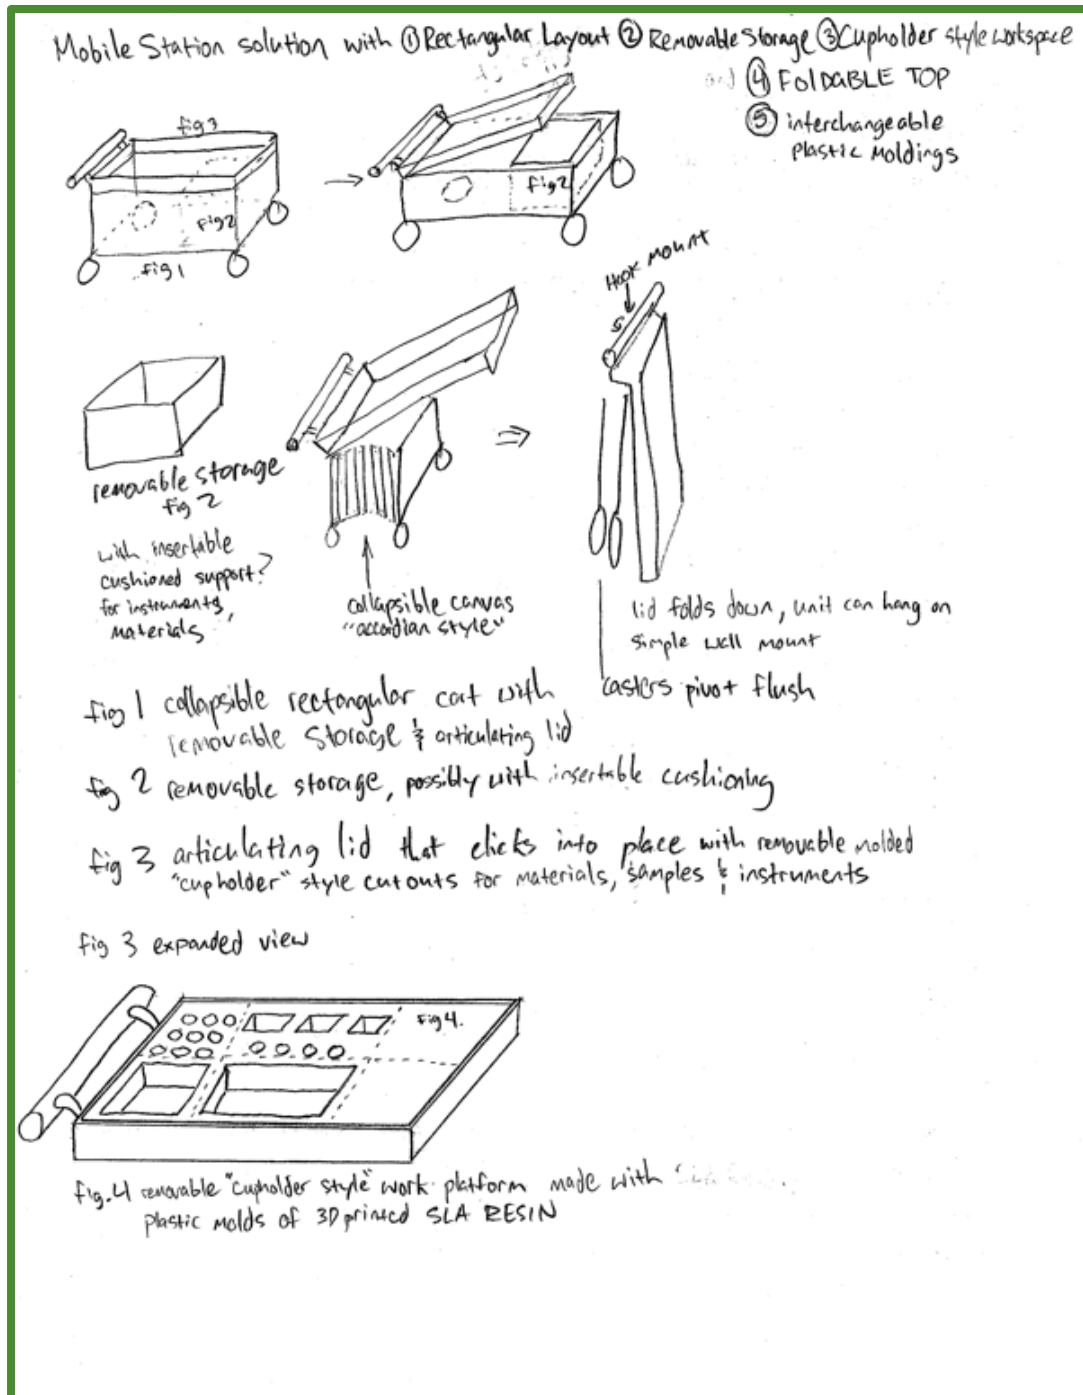 Mobile Station solution with ① Rectangular Layout ② Removable Storage ③ Cupholder style workspace
and ④ FOLDABLE TOP
⑤ interchangeable
plastic moldings
fig 3
fig 2
fig 1
fig 2
Hook mount
removable storage
fig 2
with insertable
cushioned support?
for instruments,
materials
collapsible canvas
"accordian style"
lid folds down, unit can hang on
simple wall mount
casters pivot flush
fig 1 collapsible rectangular cart with
removable storage & articulating lid
fig 2 removable storage, possibly with insertable cushioning
fig 3 articulating lid that clicks into place with removable molded
"cupholder" style cutouts for materials, samples & instruments
fig 3 expanded view
fig 4.
fig. 4 removable "cupholder style" work platform made with
plastic molds of 3D printed SLA RESIN